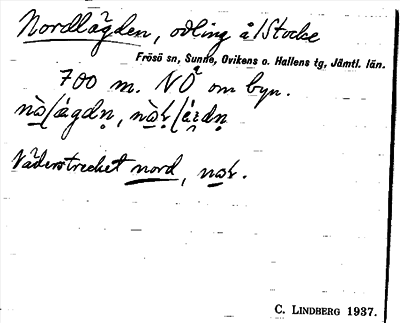 Nordlägden, odling å/Stocke
Frösö sn, Sunne, Ovikens o. Hallens tg, Jämtl. län.
700 m. NÖ om byn.
Väderstrecket nord,
C. LINDBERG 1937.